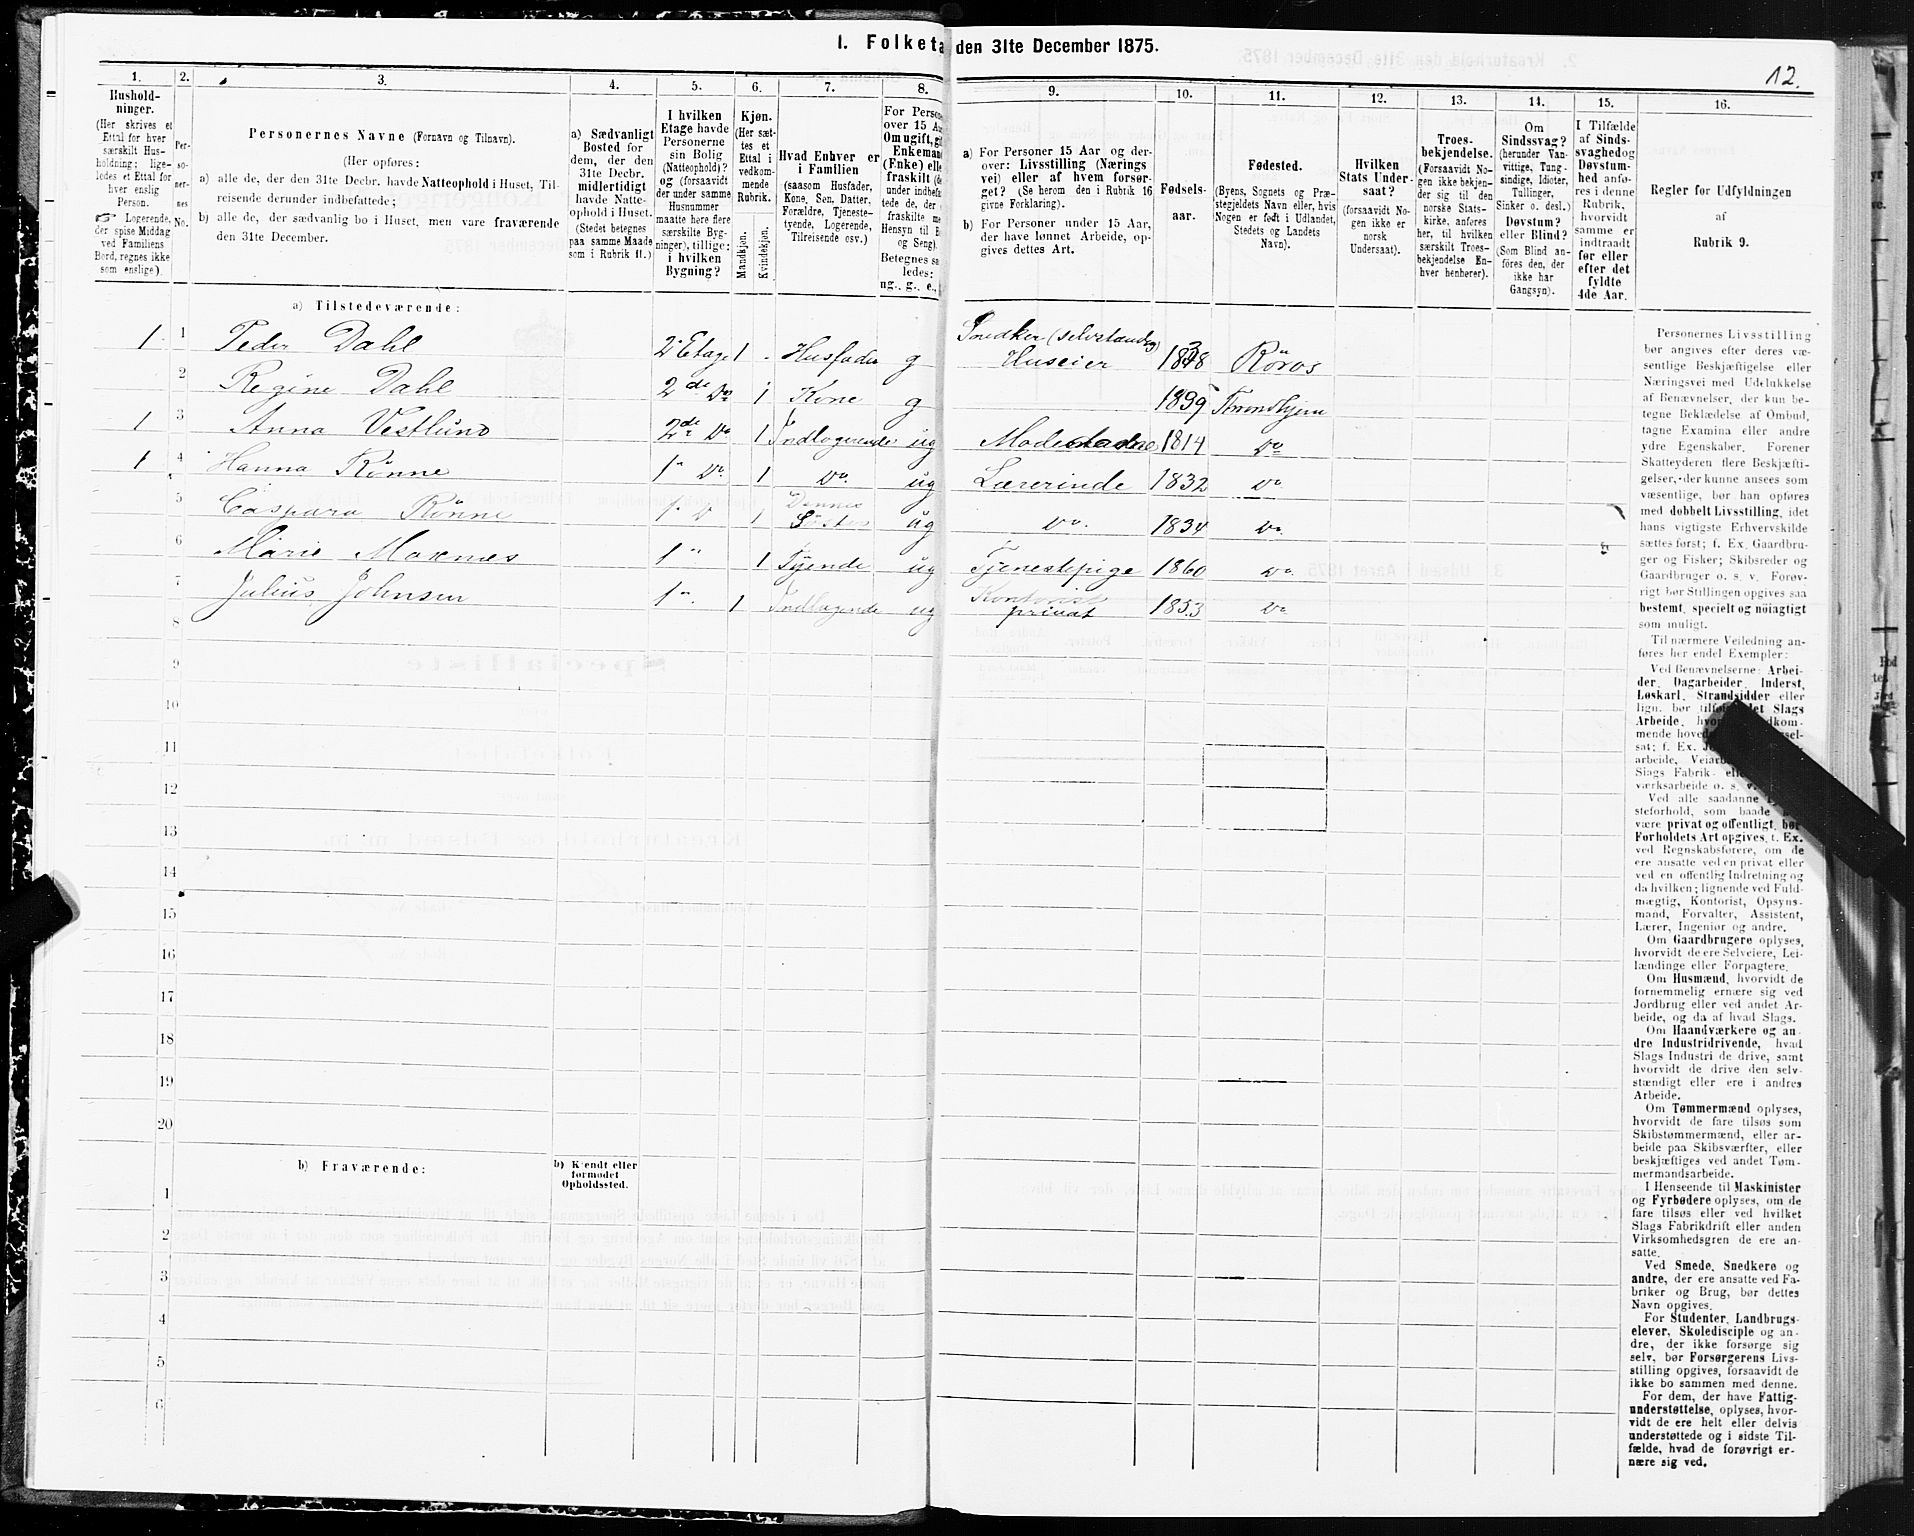 I. Folketa den 31te December 1875.
12.
1. 2. 3. 4. 5. 6. 7. 8. 9. 10. 11. 12. 13. 14. 15. 16.
Hushold-
ninger.
(Her skrives et
Ettal for hver
særskilt Hus-
holdning; lige-
ledes et Ettal for
hver enslig
Person.
☞ Logerende,
der spise Middag
ved Familiens
Bord, regnes ikke
som enslige).
Per-
so-
ner-
nes
No.
Personernes Navne (Fornavn og Tilnavn).
(Her opføres:
a) alle de, der den 31te Decbr. havde Natteophold i Huset, Til-
reisende derunder indbefattede;
b) alle de, der sædvanlig bo i Huset, men vare fraværende
den 31te December.
a) Sædvanligt
Bosted for
dem, der den
31te Decbr.
midlertidigt
havde Natte-
ophold i Huset.
(Stedet betegnes
paa samme Maade
som i Rubrik 11.)
I hvilken
Etage havde
Personerne
sin Bolig
(Natteophold)?
og (forsaavidt
der under samme
Husnummer
maatte høre flere
særskilte Byg-
ninger), tillige:
i hvilken
Bygning?
Kjøn.
(Her sæt-
tes et
Ettal i
vedkom-
mende
Rubrik.
Mandkjøn.
Kvindekjøn.
Hvad Enhver er
i Familien
(saasom Husfader,
Kone, Søn, Datter,
Forældre, Tjeneste-
tyende, Logerende,
Tilreisende osv.)
For Persone
over 15 Aa
Om ugift, gi
Enkeman
(Enke) elle
fraskilt (de
under indbefat-
tede de, der
fraskilte me
Hensyn til B
og Seng).
Betegnes sa
ledes:
ug., g., e.,
a) For Personer 15 Aar og der-
over: Livsstilling (Nærings
vei) eller af hvem forsør-
get? (Se herom den i Rubrik 16
givne Forklaring).
b) For Personer under 15 Aar,
der have lønnet Arbeide, op-
gives dettes Art.
Fødsels-
aar.
Fødested.
(Byens, Sognets og Præ-
stegjeldets Navn eller, hvis
Nogen er født i Udlandet,
Stedets og Landets
Navn).
Hvilken
Stats Under-
saat?
(forsaavidt No-
gen ikke er
norsk
Undersaat).
Troes-
bekjendelse.
(Forsaavidt No-
gen ikke bekjen-
der sig til den
norske Stats-
kirke, anføres
her, til hvilken
særskilt Troes-
bekjendelse En-
hver henhører).
Om
Sindssvag?
(herunder Van-
vittige, Tung-
sindige, Idioter,
Tullinger,
Sinker o. desl.)
Døvstum?
eller Blind?
(Som Blind an-
føres den, der
ikke har
Gangsyn).
I Tilfælde
af Sinds-
svaghed og
Døvstum-
hed anfø-
res i denne
Rubrik,
hvorvidt
samme er
indtraadt
før eller
efter det
fyldte
4de Aar.
Regler for Udfyldningen
af
Rubrik 9.
a) Tilstedeværende:
1 1 Peder Dahl 2 Etage 1 Husfader g Snedker (selvstændig) Huseier 1838 Röros
2 Regine Dahl 2de Do 1 Kone g 1839 Trondhjem
1 3 Anna Vestlund 2de Do 1 Indlogerende ug 1814 Do
1 4 Hanna Rönne 1" Do 1 Do. ug Lærerinde 1832 Do
5 Caspara Rönne 1" D 1 Dennes Söster ug Do. 1834 Do.
6 Marie Moxnes 1" 1 Tyende ug Tjenestepige 1860 Do.
7 Julius Johnsen 1" 1 Indlogende ug Kontorist privat 1853 Do
8
9
10
11
12
13
14
15
16
17
18
19
20
b) Fraværende:
b) Kjendt eller
formodet
Opholdssted.
1
2
3
4
5
6
Personernes Livsstilling
bør angives efter deres væ-
sentlige Beskjæftigelse eller
Næringsvei med Udelukkelse
af Benævnelser, der kun be-
tegne Beklædelse af Ombud,
tagne Examina eller andre
ydre Egenskaber. Forener
Skatteyderen flere Beskjæfti-
gelser, der kunne ansees som
væsentlige, bør han opføres
med dobbelt Livsstilling, idet
hans vigtigste Erhvervskilde
sættes først; f. Ex. Gaardbru-
ger og Fisker; Skibsreder og
Gaardbruger o. s. v. Forøv-
rigt bør Stillingen opgives saa
bestemt, specielt og nöiagtigt
som muligt.
Til nærmere Veiledning an-
føres her endel Exempler:
Ved Benævnelserne: Arbei-
der, Dagarbeider, Inderst,
Løskarl, Strandsidder eller
lign. bør
Slags
Arbeide,
mende
sat; f. Ex.
arbeide,
Slags Fabrik-
værksarbeide o. s. v.
Ved alle saadanne
steforhold, som baade
være privat og offentligt, bør
Forholdets Art opgives, t. Ex.
ved Regnskabsførere, om de
ere ansatte ved en privat eller
ved en offentlig Indretning og
da hvilken; lignende ved Fuld-
mægtig, Kontorist, Opsyns-
mand, Forvalter, Assistent,
Lærer, Ingeniør og andre.
Om Gaardbrugere oplyses,
hvorvidt de ere Selveiere, Lei-
lændinge eller Forpagtere.
Om Husmænd, hvorvidt de
fornemmelig ernære sig ved
Jordbrug eller ved andet Ar-
beide, og da af hvad Slags.
Om Haandværkere og an-
dre Industridrivende, hvad
Slags Industri de drive, samt
hvorvidt de drive den selv-
stændigt eller ere i andres
Arbeide.
Om Tømmermænd oplyses,
hvorvidt de fare tilsøs som
Skibstømmermænd, eller ar-
beide paa Skibsværfter, eller
beskjæftiges ved andet Tøm-
mermandsarbeide.
I Henseende til Maskinister
og Fyrbødere oplyses, om de
fare tilsøs eller ved hvilket
Slags Fabrikdrift eller anden
Virksomhedsgren de ere an-
satte.
Ved Smede, Snedkere og
andre, der ere ansatte ved Fa-
briker og Brug, bør dettes
Navn opgives.
For Studenter, Landbrugs-
elever, Skoledisciple og an-
dre, der ikke forsørge sig
selv, bør Forsørgerens Livs-
stilling opgives, forsaavidt de
ikke bo sammen med denne.
For dem, der have Fattig-
understøttelse, oplyses, hvor-
vidt de ere helt eller delvis
understøttede og i sidste Til-
fælde, hvad de forøvrigt er-
nære sig ved.